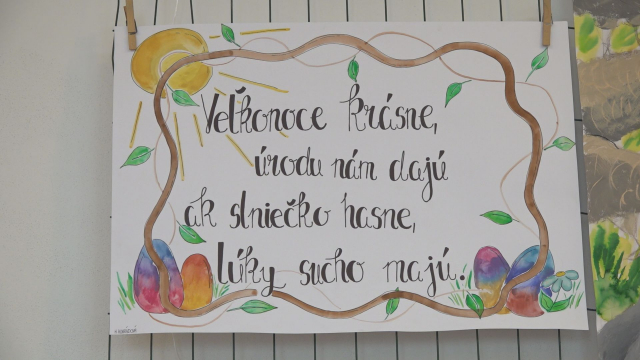 Veľkonoce krásne,
úrodu nám dajú
ak slniečko hasne,
lúky sucho majú.